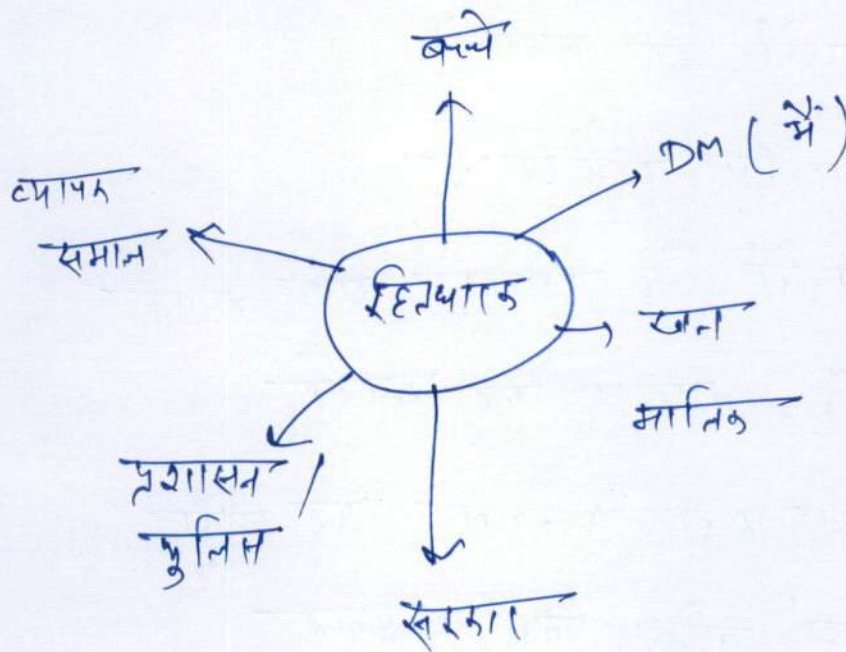 बच्चे
DM ( मैं )
व्यापक
समाज
हितधारक
खान
मालिक
प्रशासन /
पुलिस
सरकार